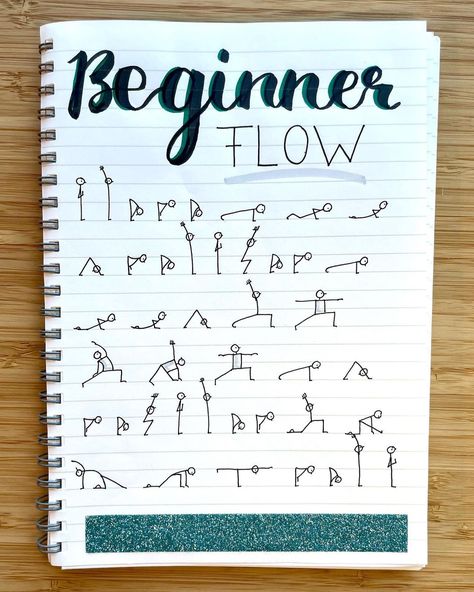 Beginner
FLOW